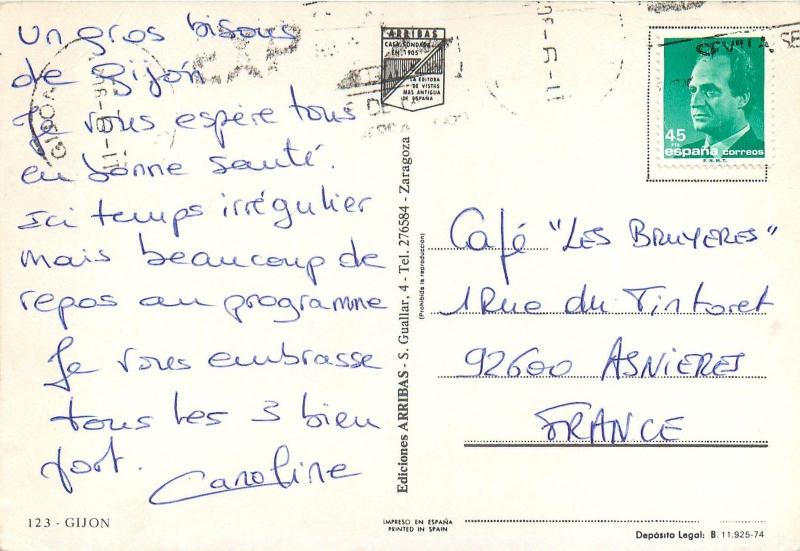 Un gros bisous
de Gijón
Je vous espère tous
en bonne santé.
Ici temps irrégulier
mais beaucoup de
repos au programme
Je vous embrasse
tous les 3 bien
fort.
Caroline
123 - GIJON
ARRIBAS
CASA FUNDADA
EN 1905
LA EDITORA
DE VISTAS
MAS ANTIGUA
DE ESPAÑA
Ediciones ARRIBAS - S. Guallar, 4 - Tel. 276584 - Zaragoza
(Prohibida la reproducción)
IMPRESO EN ESPAÑA
PRINTED IN SPAIN
SEVILLA
45
PTA
españa correos
F.N.M.T.
Café "LES BRUYERES"
1 Rue du Tintoret
92600 ASNIERES
FRANCE
Depósito Legal: B. 11.925-74
GIJON